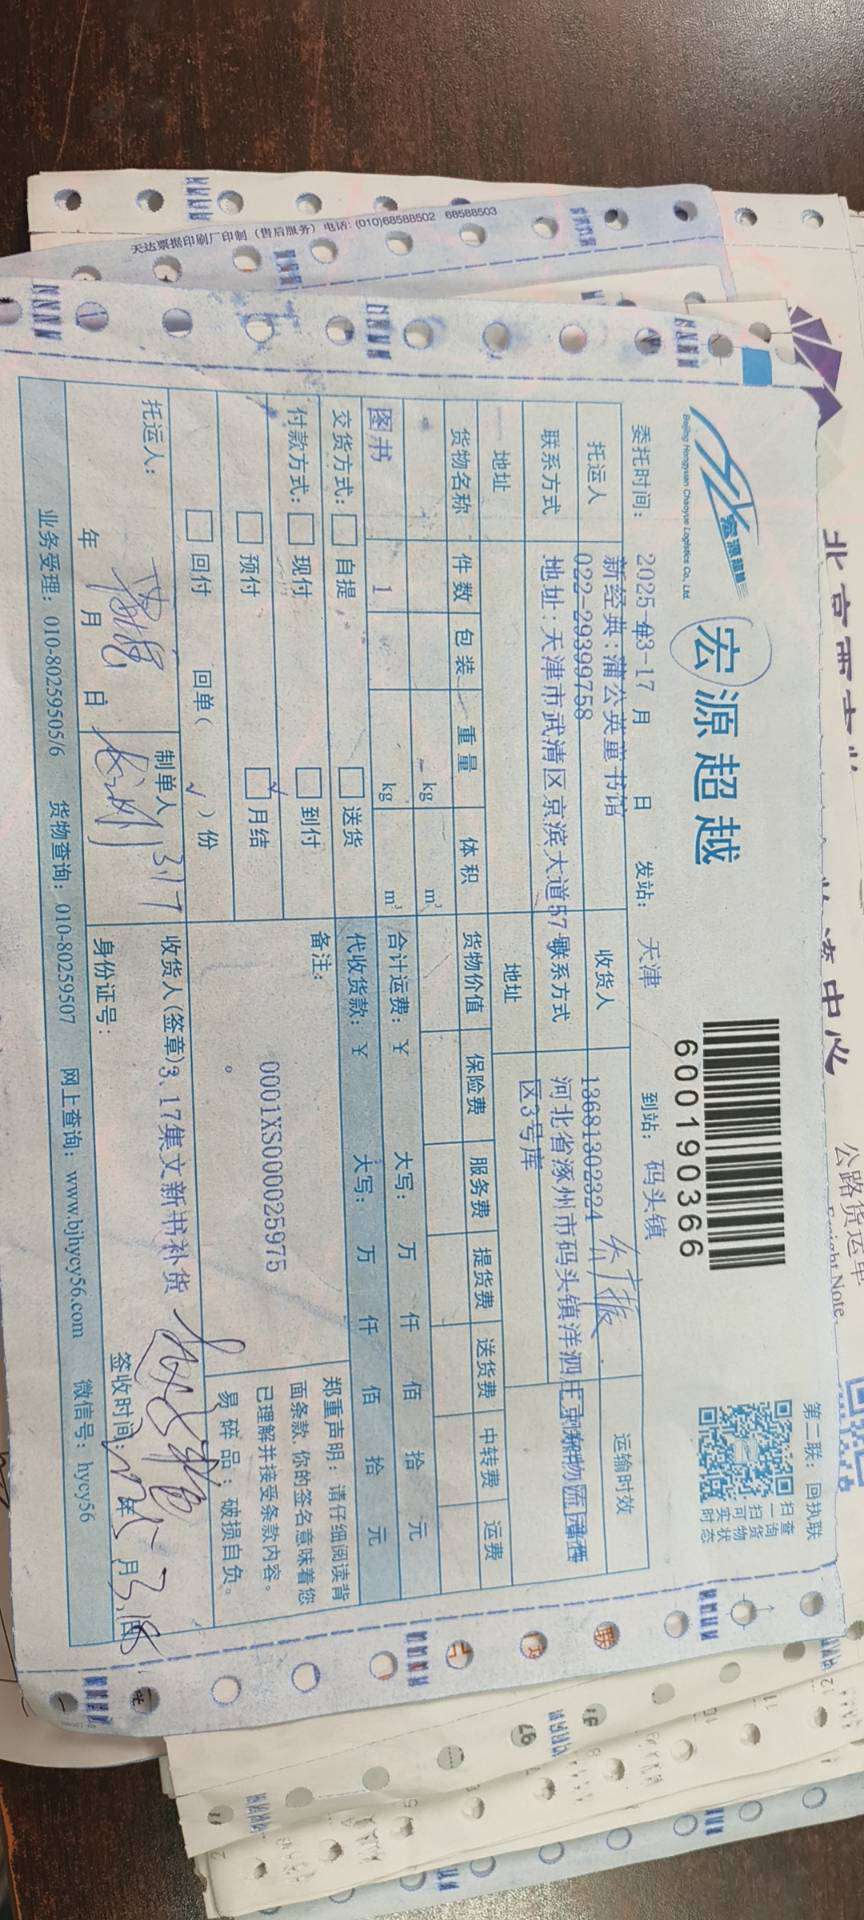 天达票据印刷厂印制（售后服务）电话: (010)68588502 68588503
公路货运单
Freight Note
宏源超越
Beijing Hongyuan Chaoyue Logistics Co., Ltd
宏源超越
600190366
第二联：回执联
扫一扫可查询货物实时状态
委托时间：2025年3-17月 日 发站：天津 到站：码头镇
托运人 新经典:蒲公英童书馆 收货人 运输时效
联系方式 022-29399758 联系方式 13681302324
地址 地址:天津市武清区京滨大道57号 地址 河北省涿州市码头镇洋泗庄
区3号库
货物名称 件数 包装 重量 体积 货物价值 保险费 服务费 提货费 送货费 中转费 运费
kg m³
图书 1 kg m³ 合计运费：￥ 大写： 万 仟 佰 拾 元
交货方式： 自提 送货 代收货款：￥ 大写： 万 仟 佰 拾 元
付款方式： 现付 到付 备注：
预付 月结 0001XS000025975
回付 回单（ √ ）份 。
郑重声明：请仔细阅读背面条款,你的签名意味着您已理解并接受条款内容。
易碎品：破损自负。
托运人： 制单人 3.17 收货人(签章)3.17集文新书补货
年 月 日 身份证号： 签收时间：2025年 3月18日
业务受理：010-80259505/6 货物查询：010-80259507 网上查询：www.bjhycy56.com 微信号：hycy56